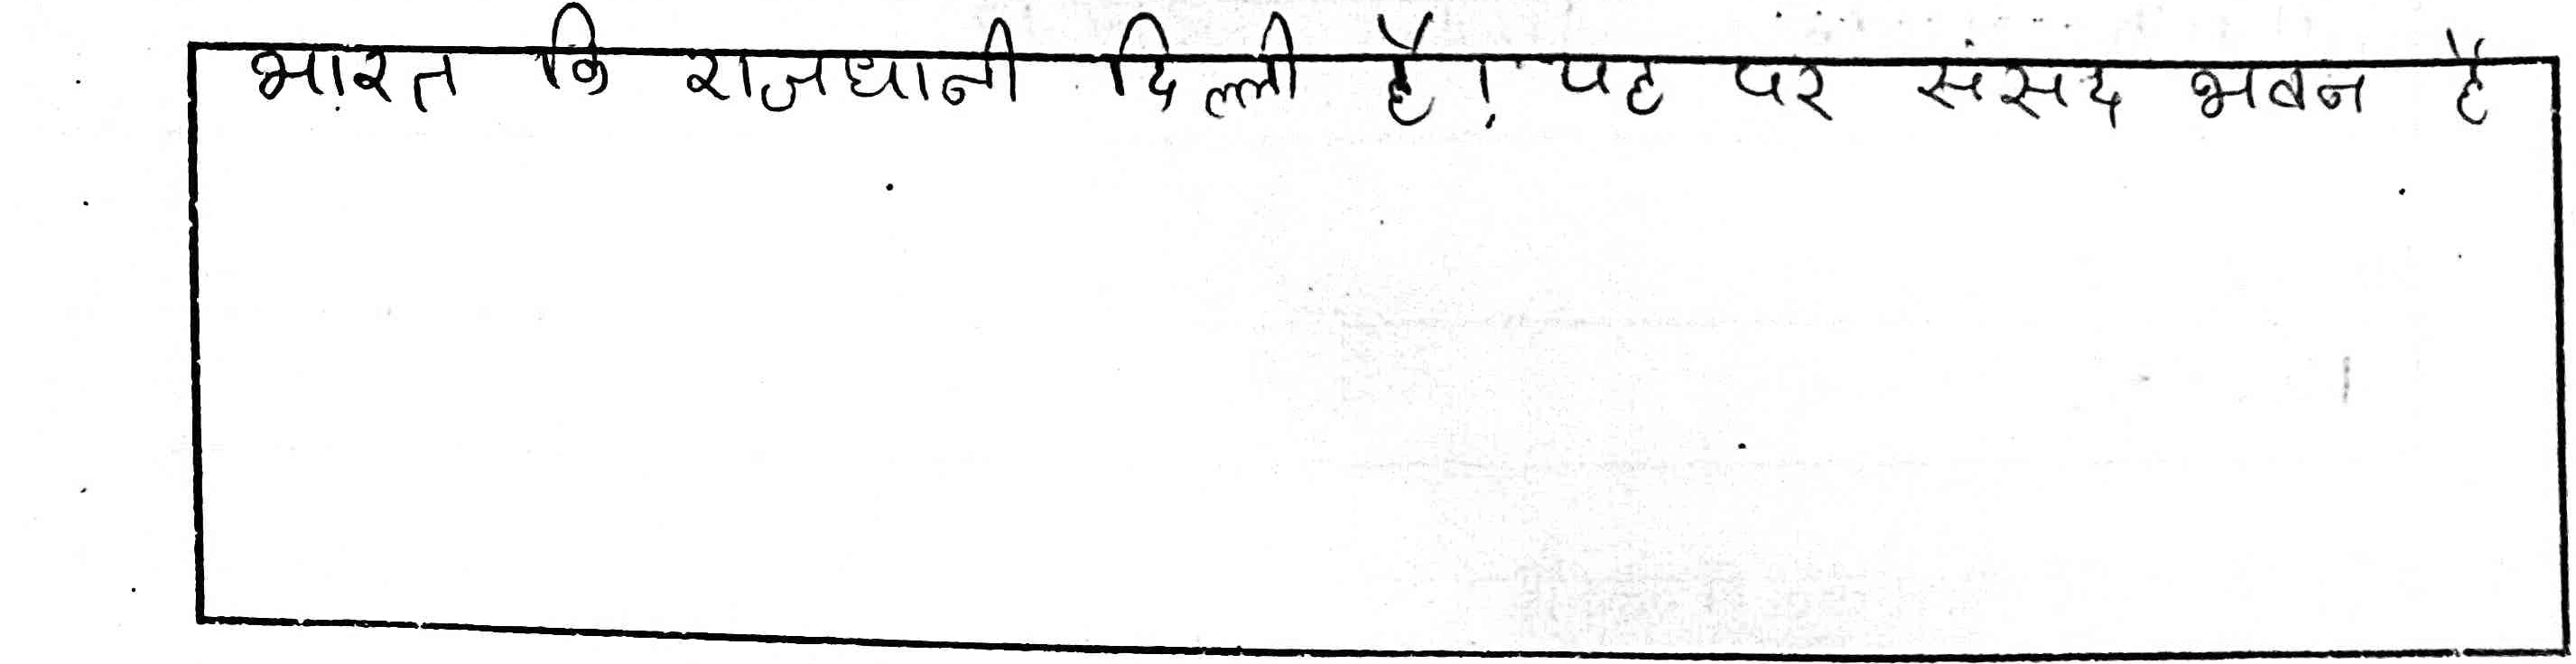 भारत कि राजधानी दिल्ली है। यह पर संसद भवन है